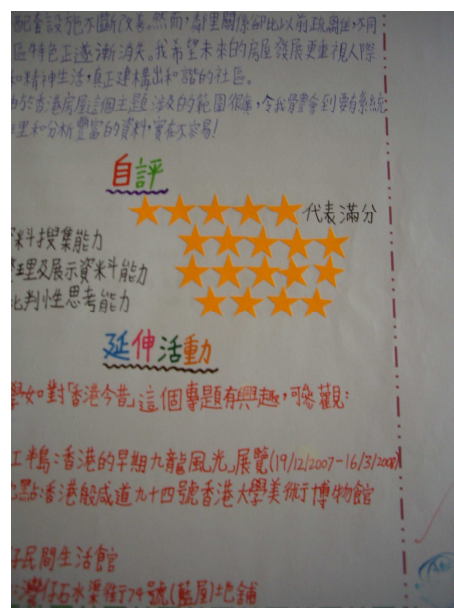 配套設施不斷改善。然而，鄰里關係卻比以前疏離，不同
區特色正逐漸消失。我希望未來的房屋發展更重視人際
和精神生活，真正建構出和諧的社區。
由於香港房屋這個主題涉及的範圍很廣，令我學會到要有系統
理和分析豐富的資料，實在不容易！
自評
代表滿分
料搜集能力
整理及展示資料能力
批判性思考能力
延伸活動
學如對「香港今昔」這個專題有興趣，可參觀：
江半島：香港的早期九龍風光」展覽(19/12/2007-16/3/2008)
地點：香港般咸道九十四號香港大學美術博物館
仔民間生活館
灣仔石水渠街74號(藍屋)地舖